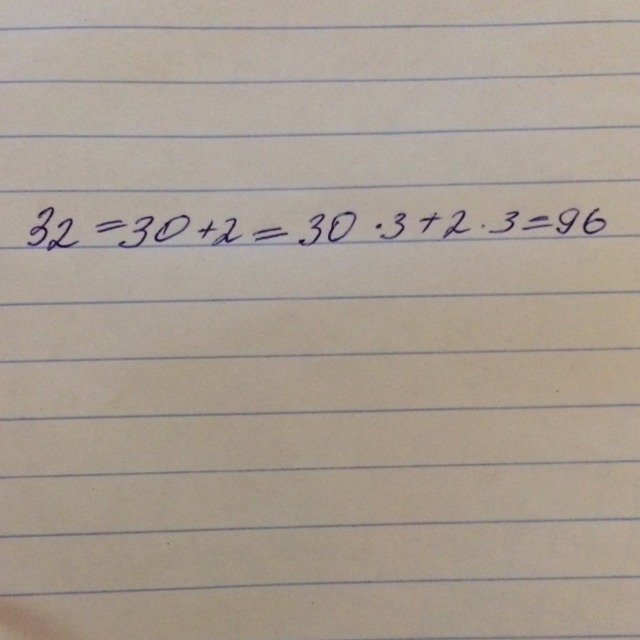 32 = 30 + 2 = 30 · 3 + 2 · 3 = 96